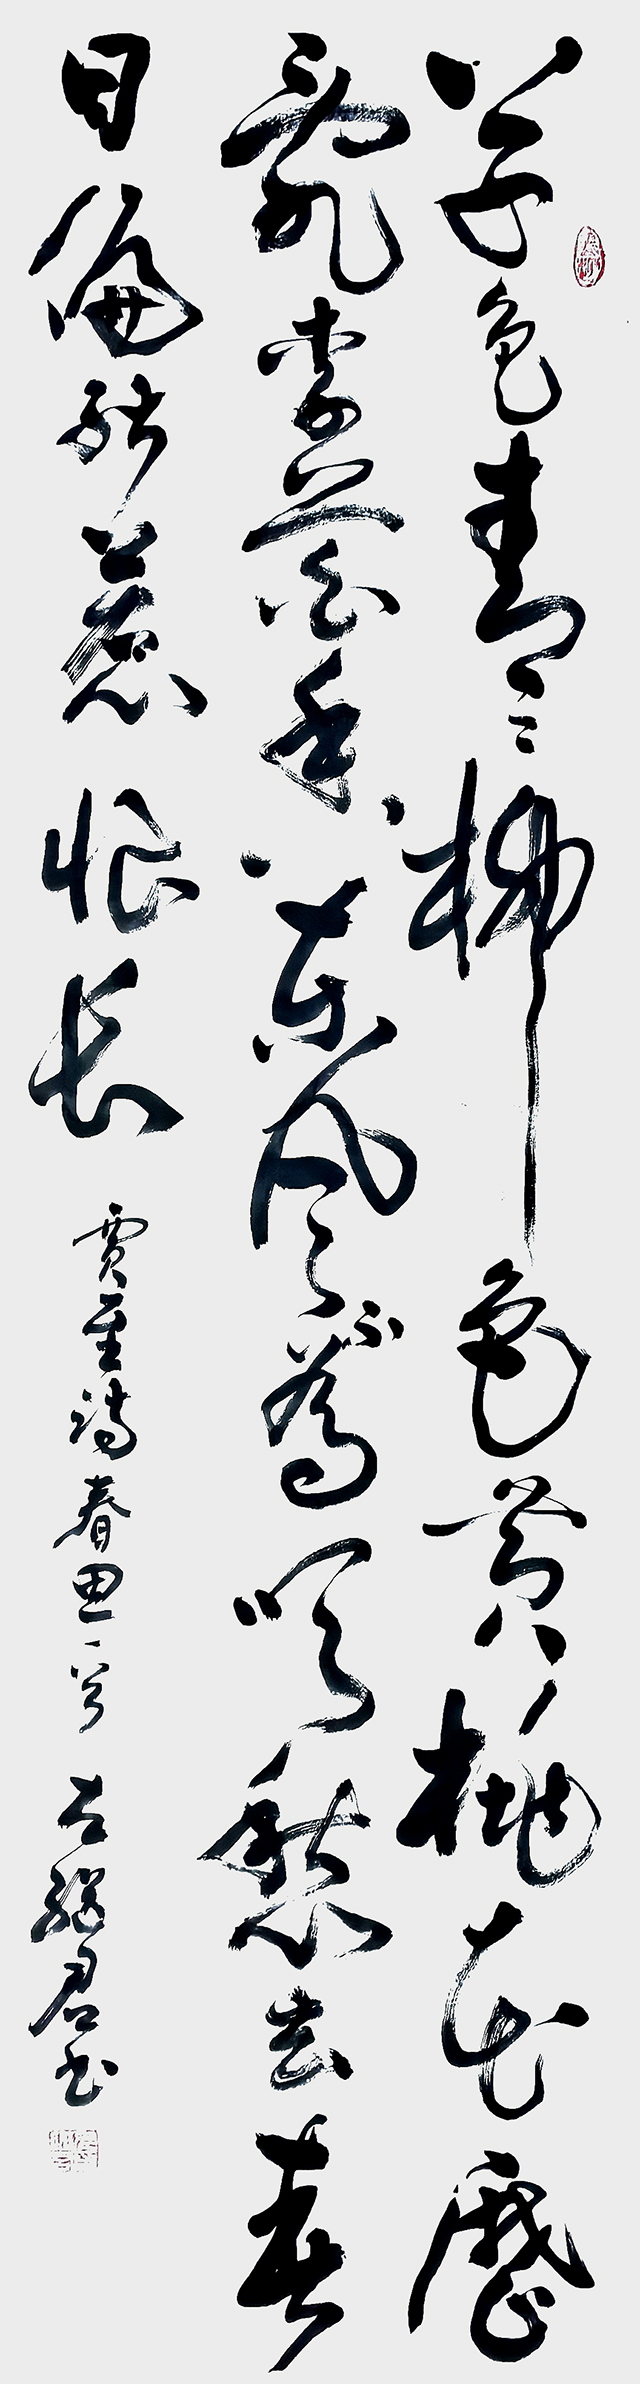 草色青〻柳色黄桃花歷
亂李花香東風不為吹愁去春
日偏能惹恨長
賈至詩春思一首 古繼君书